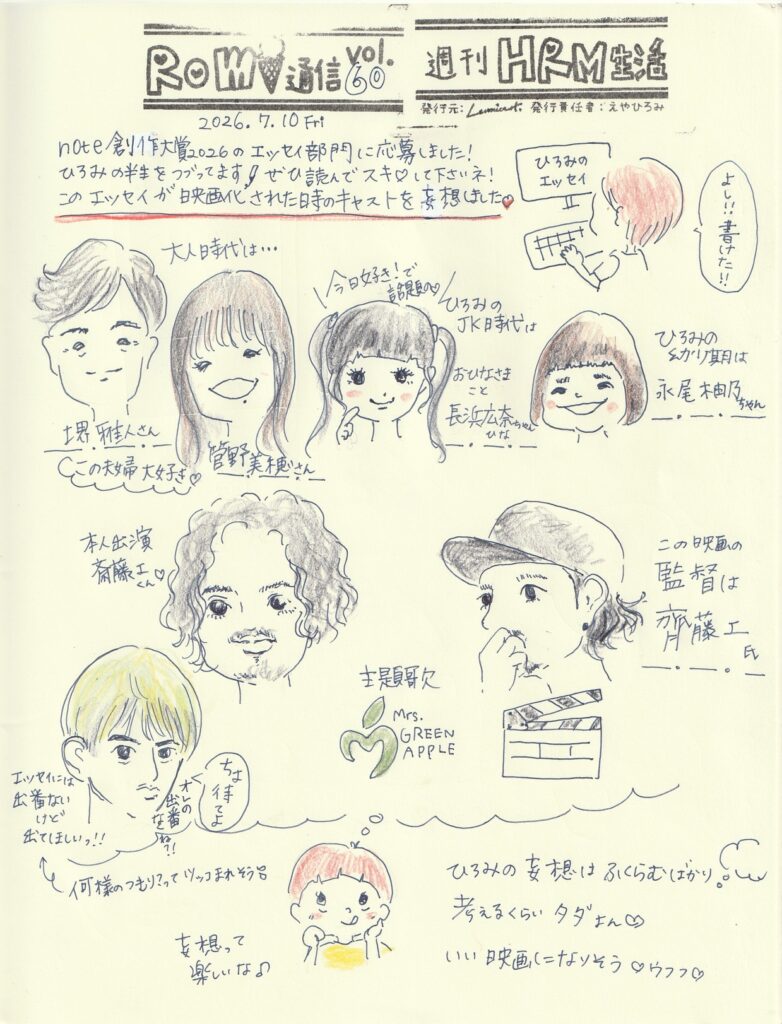 ROM通信 vol.60
週刊 HRM生活
発行元: Lumicat. 発行責任者：えやひろみ
2026.7.10 Fri
note創作大賞2026のエッセイ部門に応募しました！
ひろみの半生をつづってます！ぜひ読んでスキ♡して下さいネ！
このエッセイが映画化された時のキャストを妄想しました♥
ひろみの
エッセイ
よし!! 書けた!!
大人時代は…
堺 雅人さん
菅野美穂さん
この夫婦大好き♡
今日好き！で
話題の♡
ひろみの
JK時代は
おひなさま
こと
長浜広奈ちゃん
ひな
ひろみの
幼少期は
永尾柚乃ちゃん
本人出演
斎藤工くん♡
この映画の
監督は
齊藤工氏
主題歌
Mrs.
GREEN
APPLE
エッセイには
出番ない
けど
出てほしいっ!!
ちょ
待てよ
オレの
出番
なくね?!
何様のつもり?ってツッコまれそう
妄想って
楽しいな♪
ひろみの妄想はふくらむばかり。
考えるくらいタダよん♡
いい映画になりそう♡ウフフ♡